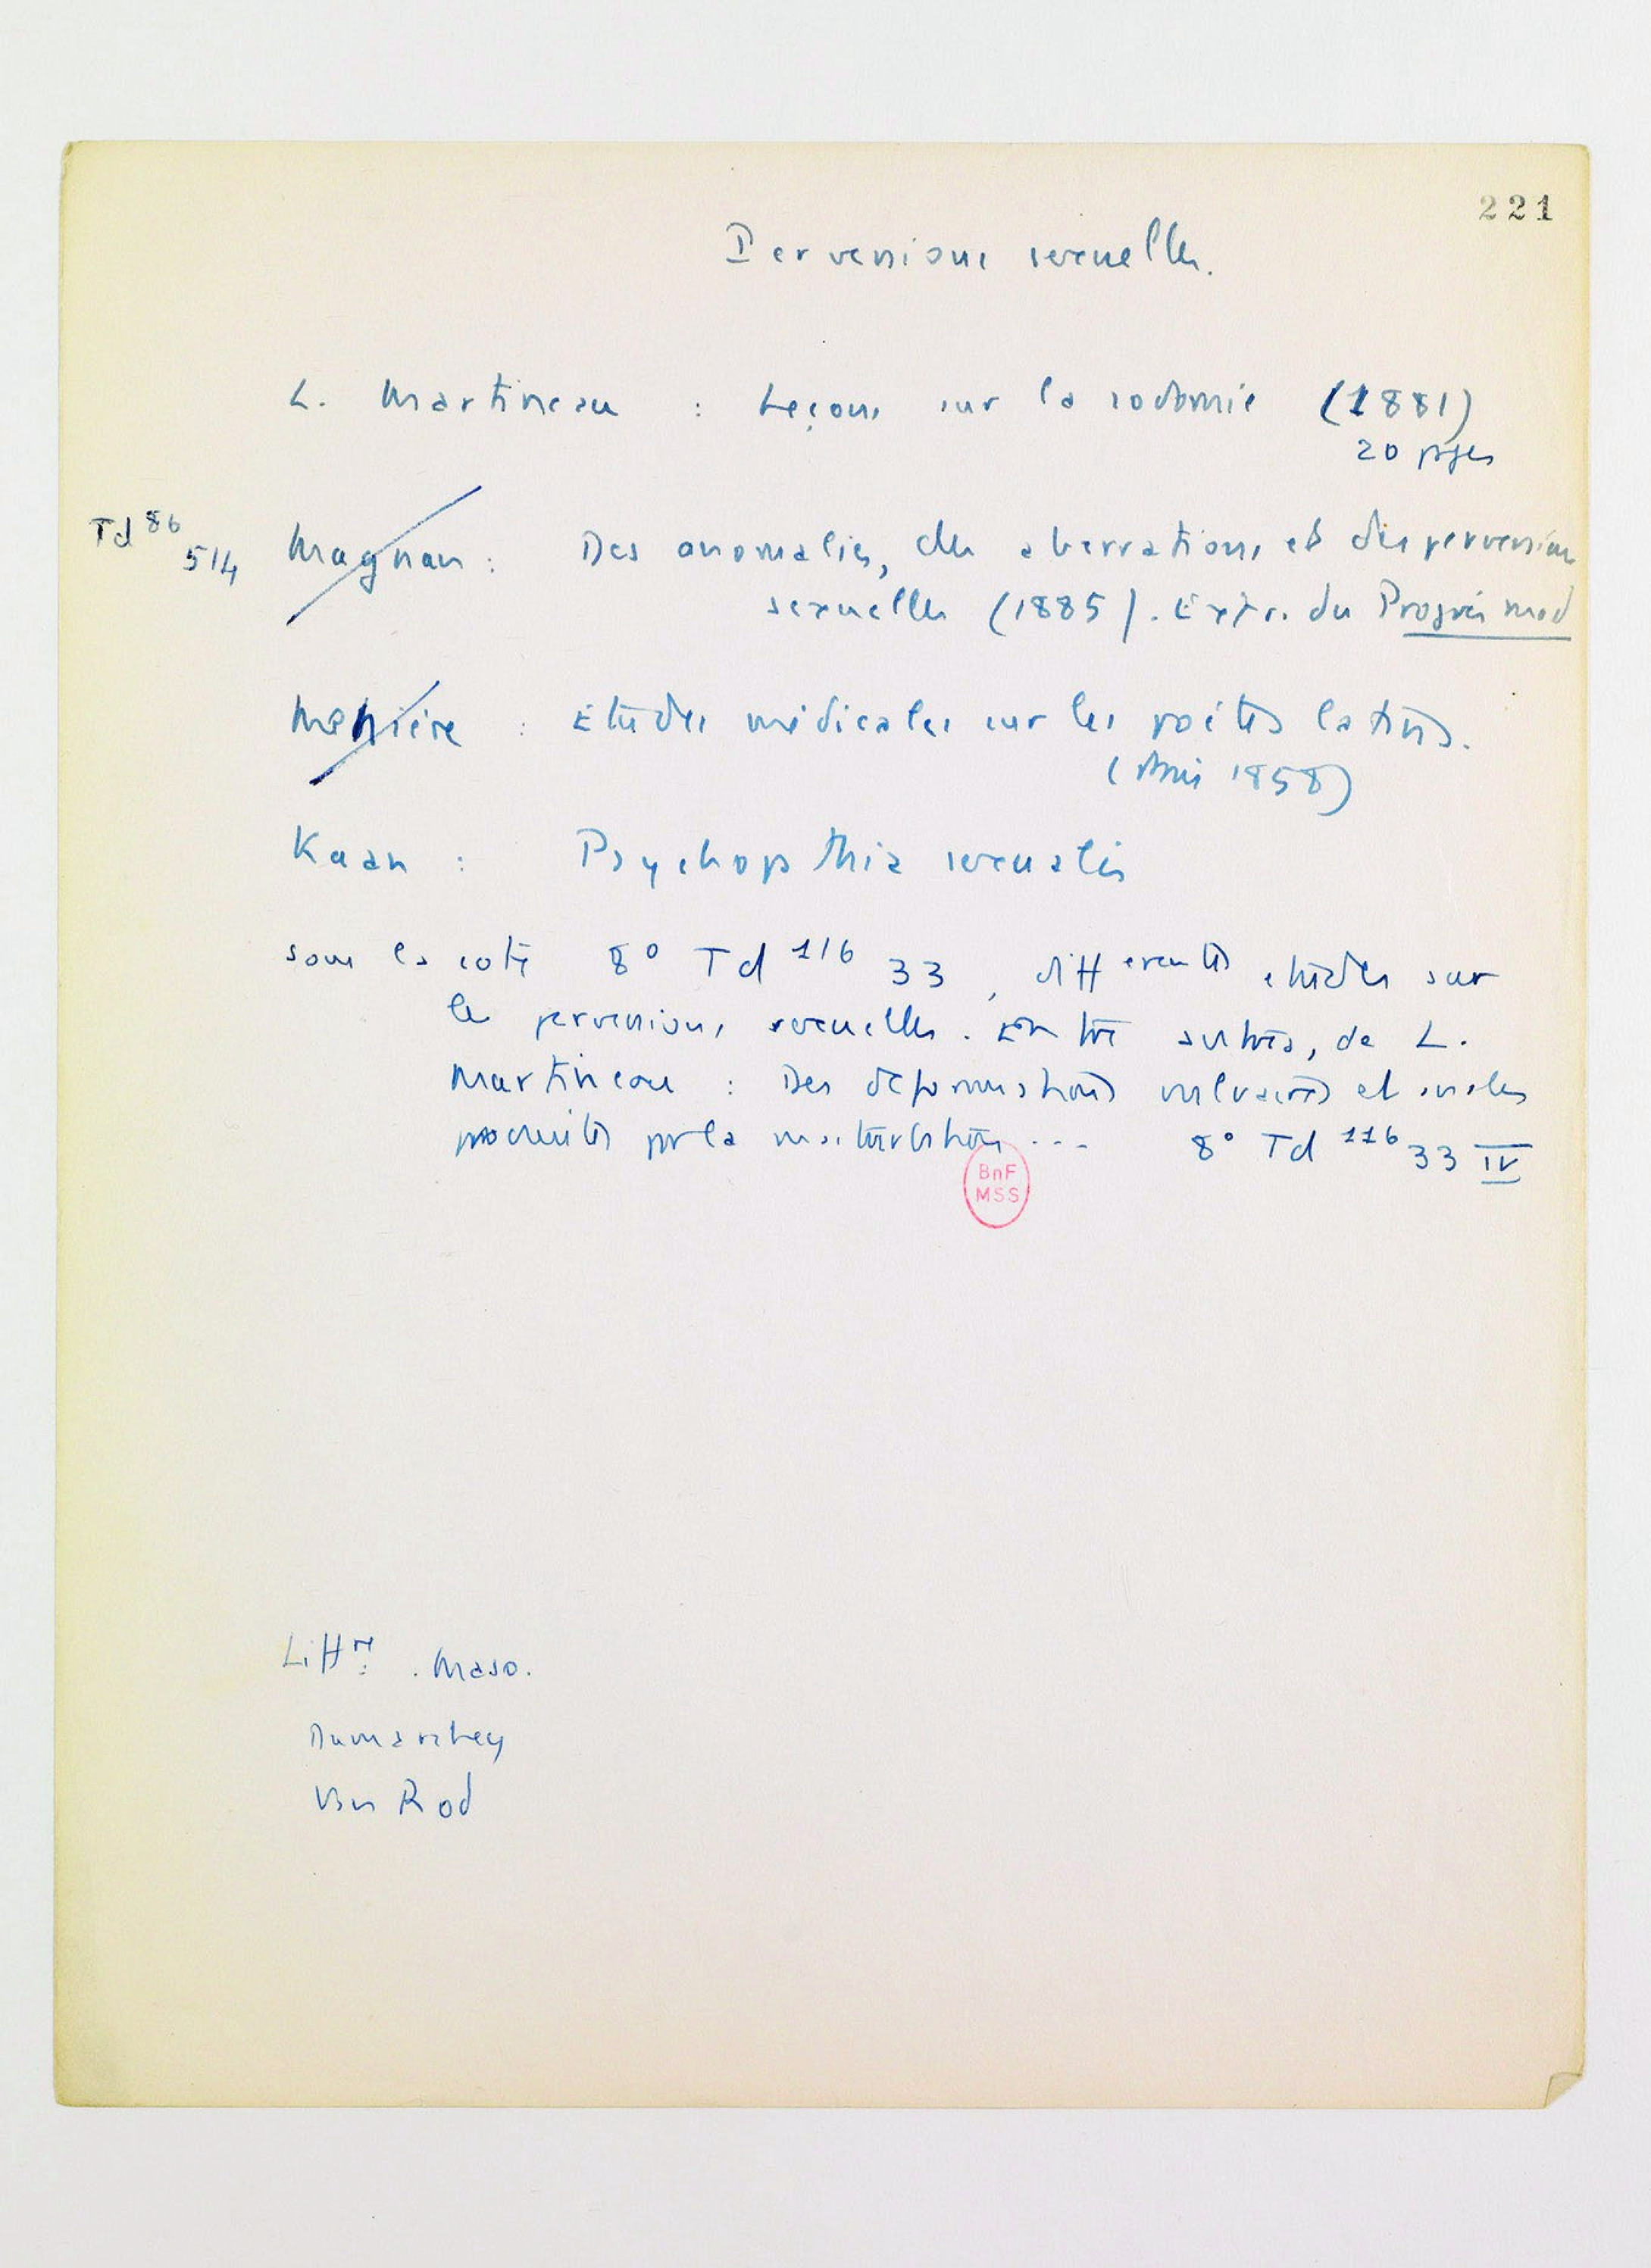 221
Perversions sexuelles.
L. Martineau : Leçons sur la sodomie (1881)
20 pages
Td 86
514
Magnan : Des anomalies, des aberrations et des perversions
sexuelles (1885). Extr. du Progrès med
Menière : Etudes médicales sur les poètes latins.
(Paris 1858)
Kaan : Psychopathia sexualis
sous la cote 8° Td 116 33, differentes etudes sur
les perversions sexuelles. Entre autres, de L.
Martineau : Des déformations vulvaires et anales
produites par la masturbation --- 8° Td 116 33 IV
BnF
MSS
Maso.
Dumarchey
Van Rod